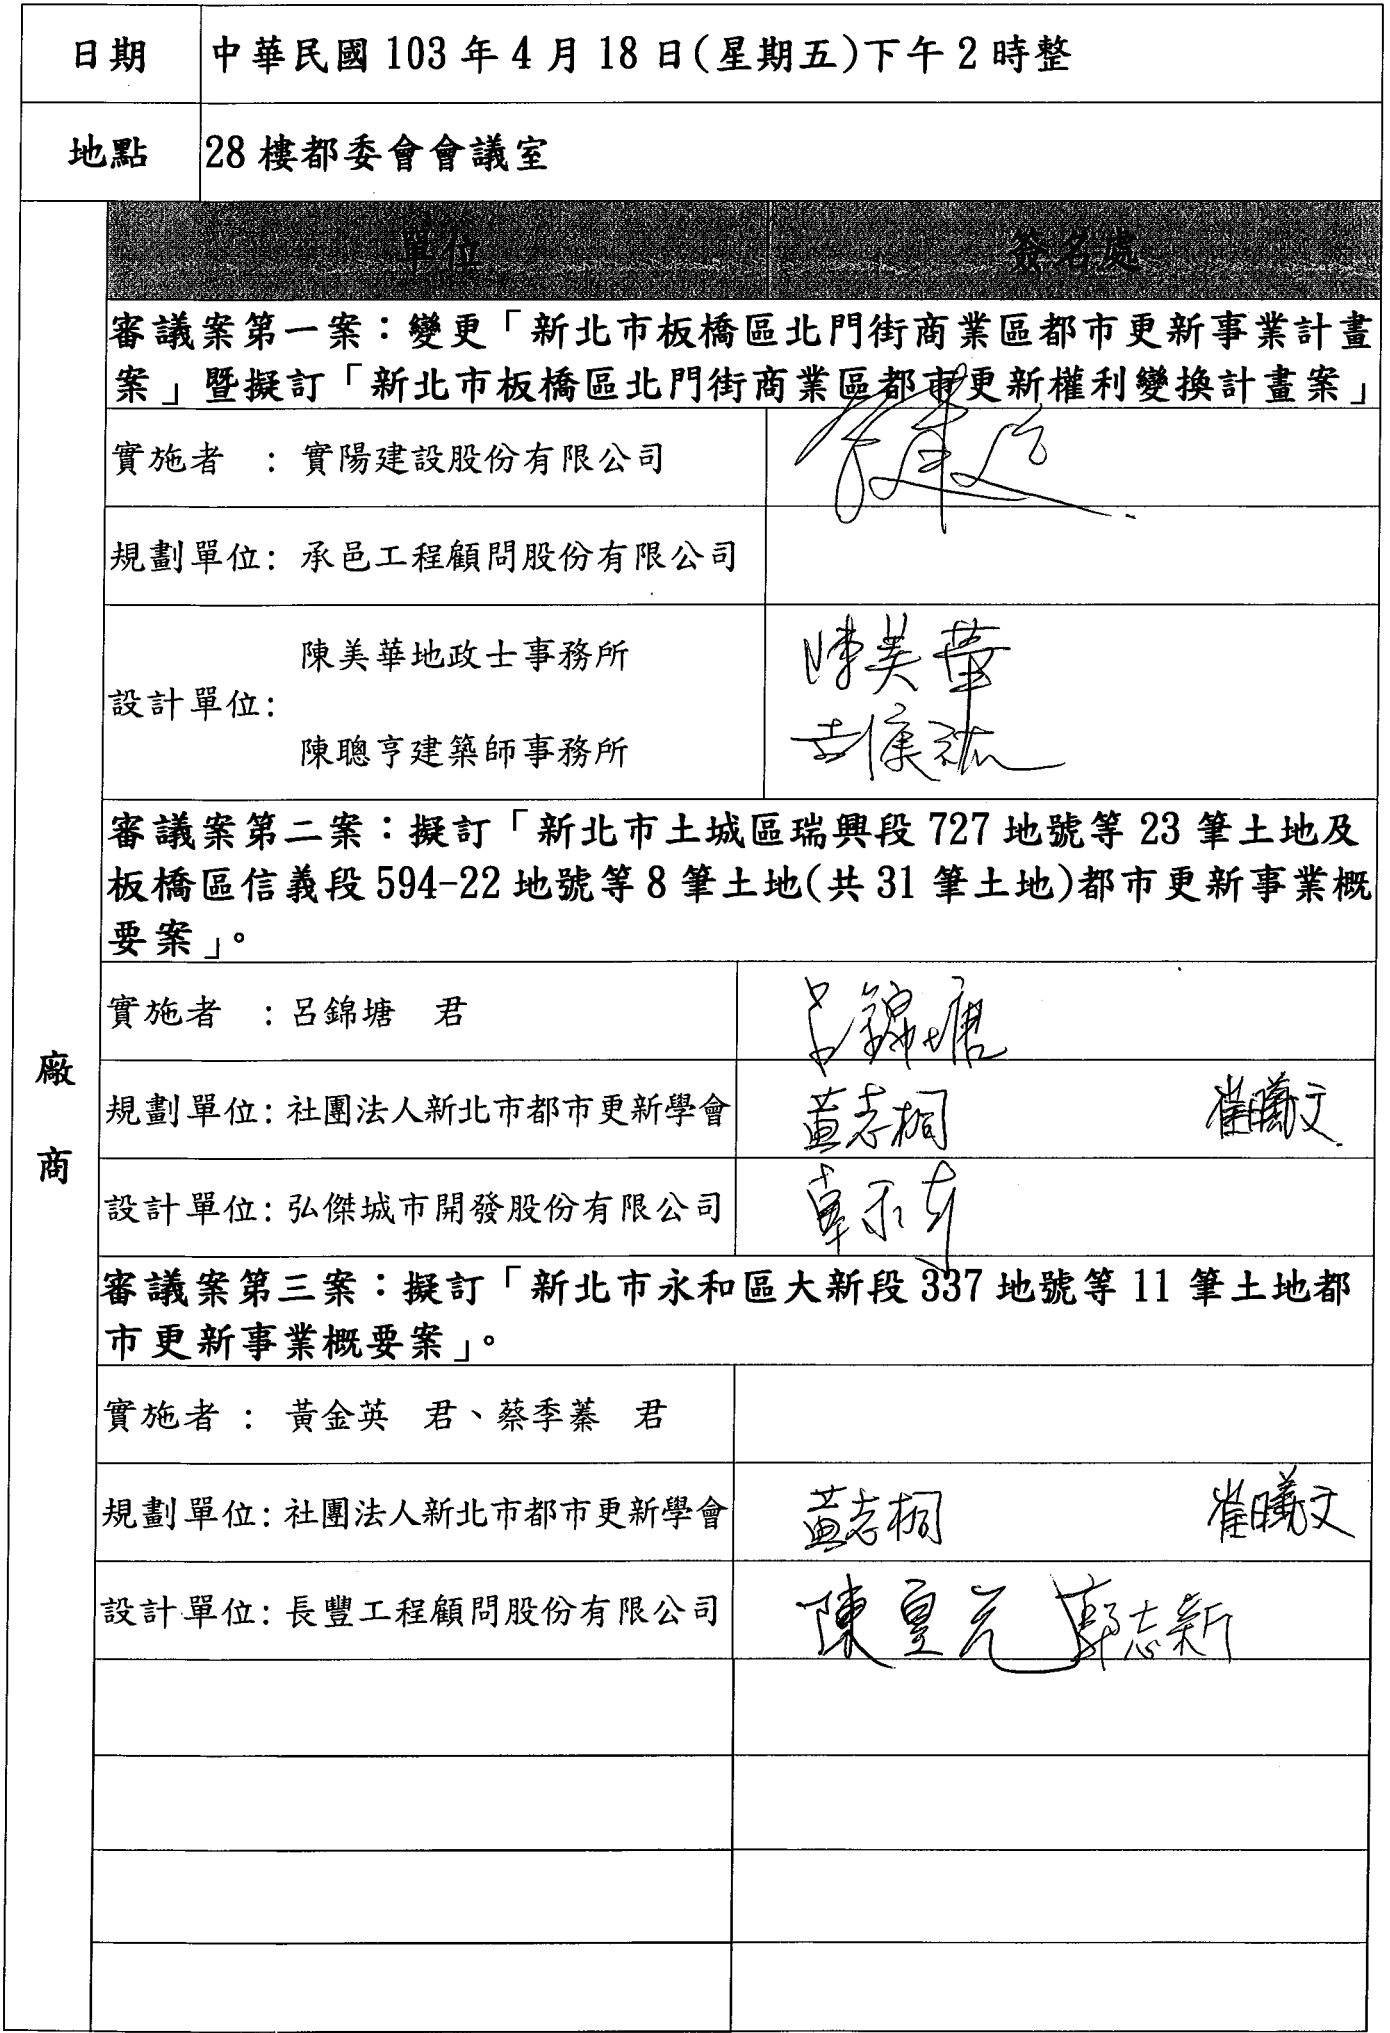 日期 中華民國 103 年 4 月 18 日(星期五)下午 2 時整
地點 28 樓都委會會議室
單位 簽名處
審議案第一案：變更「新北市板橋區北門街商業區都市更新事業計畫
案」暨擬訂「新北市板橋區北門街商業區都市更新權利變換計畫案」
實施者 : 實陽建設股份有限公司
規劃單位: 承邑工程顧問股份有限公司
陳美華地政士事務所 陳美華
設計單位:
陳聰亨建築師事務所
審議案第二案：擬訂「新北市土城區瑞興段 727 地號等 23 筆土地及
板橋區信義段 594-22 地號等 8 筆土地(共 31 筆土地)都市更新事業概
要案」。
實施者 : 呂錦塘 君 呂錦塘
廠商
規劃單位: 社團法人新北市都市更新學會 黃志桐 崔曦文
設計單位: 弘傑城市開發股份有限公司
審議案第三案：擬訂「新北市永和區大新段 337 地號等 11 筆土地都
市更新事業概要案」。
實施者 : 黃金英 君、蔡季蓁 君
規劃單位: 社團法人新北市都市更新學會 黃志桐 崔曦文
設計單位: 長豐工程顧問股份有限公司 陳皇元 郭志新